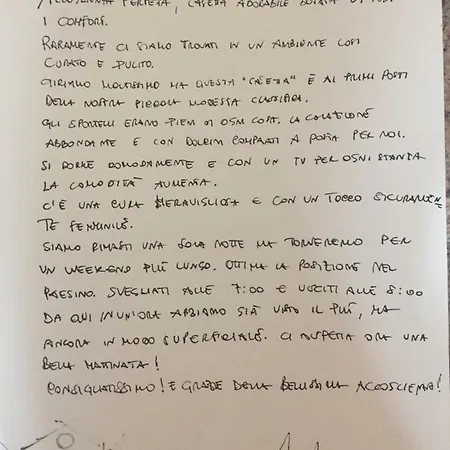 ACCOGLIENZA PERFETTA, CASETTA ADORABILE DOTATA DI TUTTI
I COMFORT.
RARAMENTE CI SIAMO TROVATI IN UN AMBIENTE COSÌ
CURATO E PULITO.
GIRIAMO MOLTISSIMO MA QUESTA "CASETTA" È AI PRIMI POSTI
DELLA NOSTRA PICCOLA MODESTA CLASSIFICA.
GLI SPORTELLI ERANO PIENI DI OGNI COSA. LA COLAZIONE
ABBONDANTE E CON DOLCINI COMPRATI A POSTA PER NOI.
SI DORME COMODAMENTE E CON UN TV PER OGNI STANZA
LA COMODITÀ AUMENTA.
C'È UNA CURA MERAVIGLIOSA E CON UN TOCCO SICURAMEN
TE FEMMINILE.
SIAMO RIMASTI UNA SOLA NOTTE MA TORNEREMO PER
UN WEEKEND PIÙ LUNGO. OTTIMA LA POSIZIONE NEL
PAESINO. SVEGLIATI ALLE 7:00 E USCITI ALLE 8:00
DA QUI IN UN'ORA ABBIAMO GIÀ VISTO IL PIÙ, MA
ANCORA IN MODO SUPERFICIALE. CI ASPETTA ORA UNA
BELLA MATTINATA!
CONSIGLIATISSIMO! E GRAZIE DELLA BELLISSIMA ACCOGLIENZA!